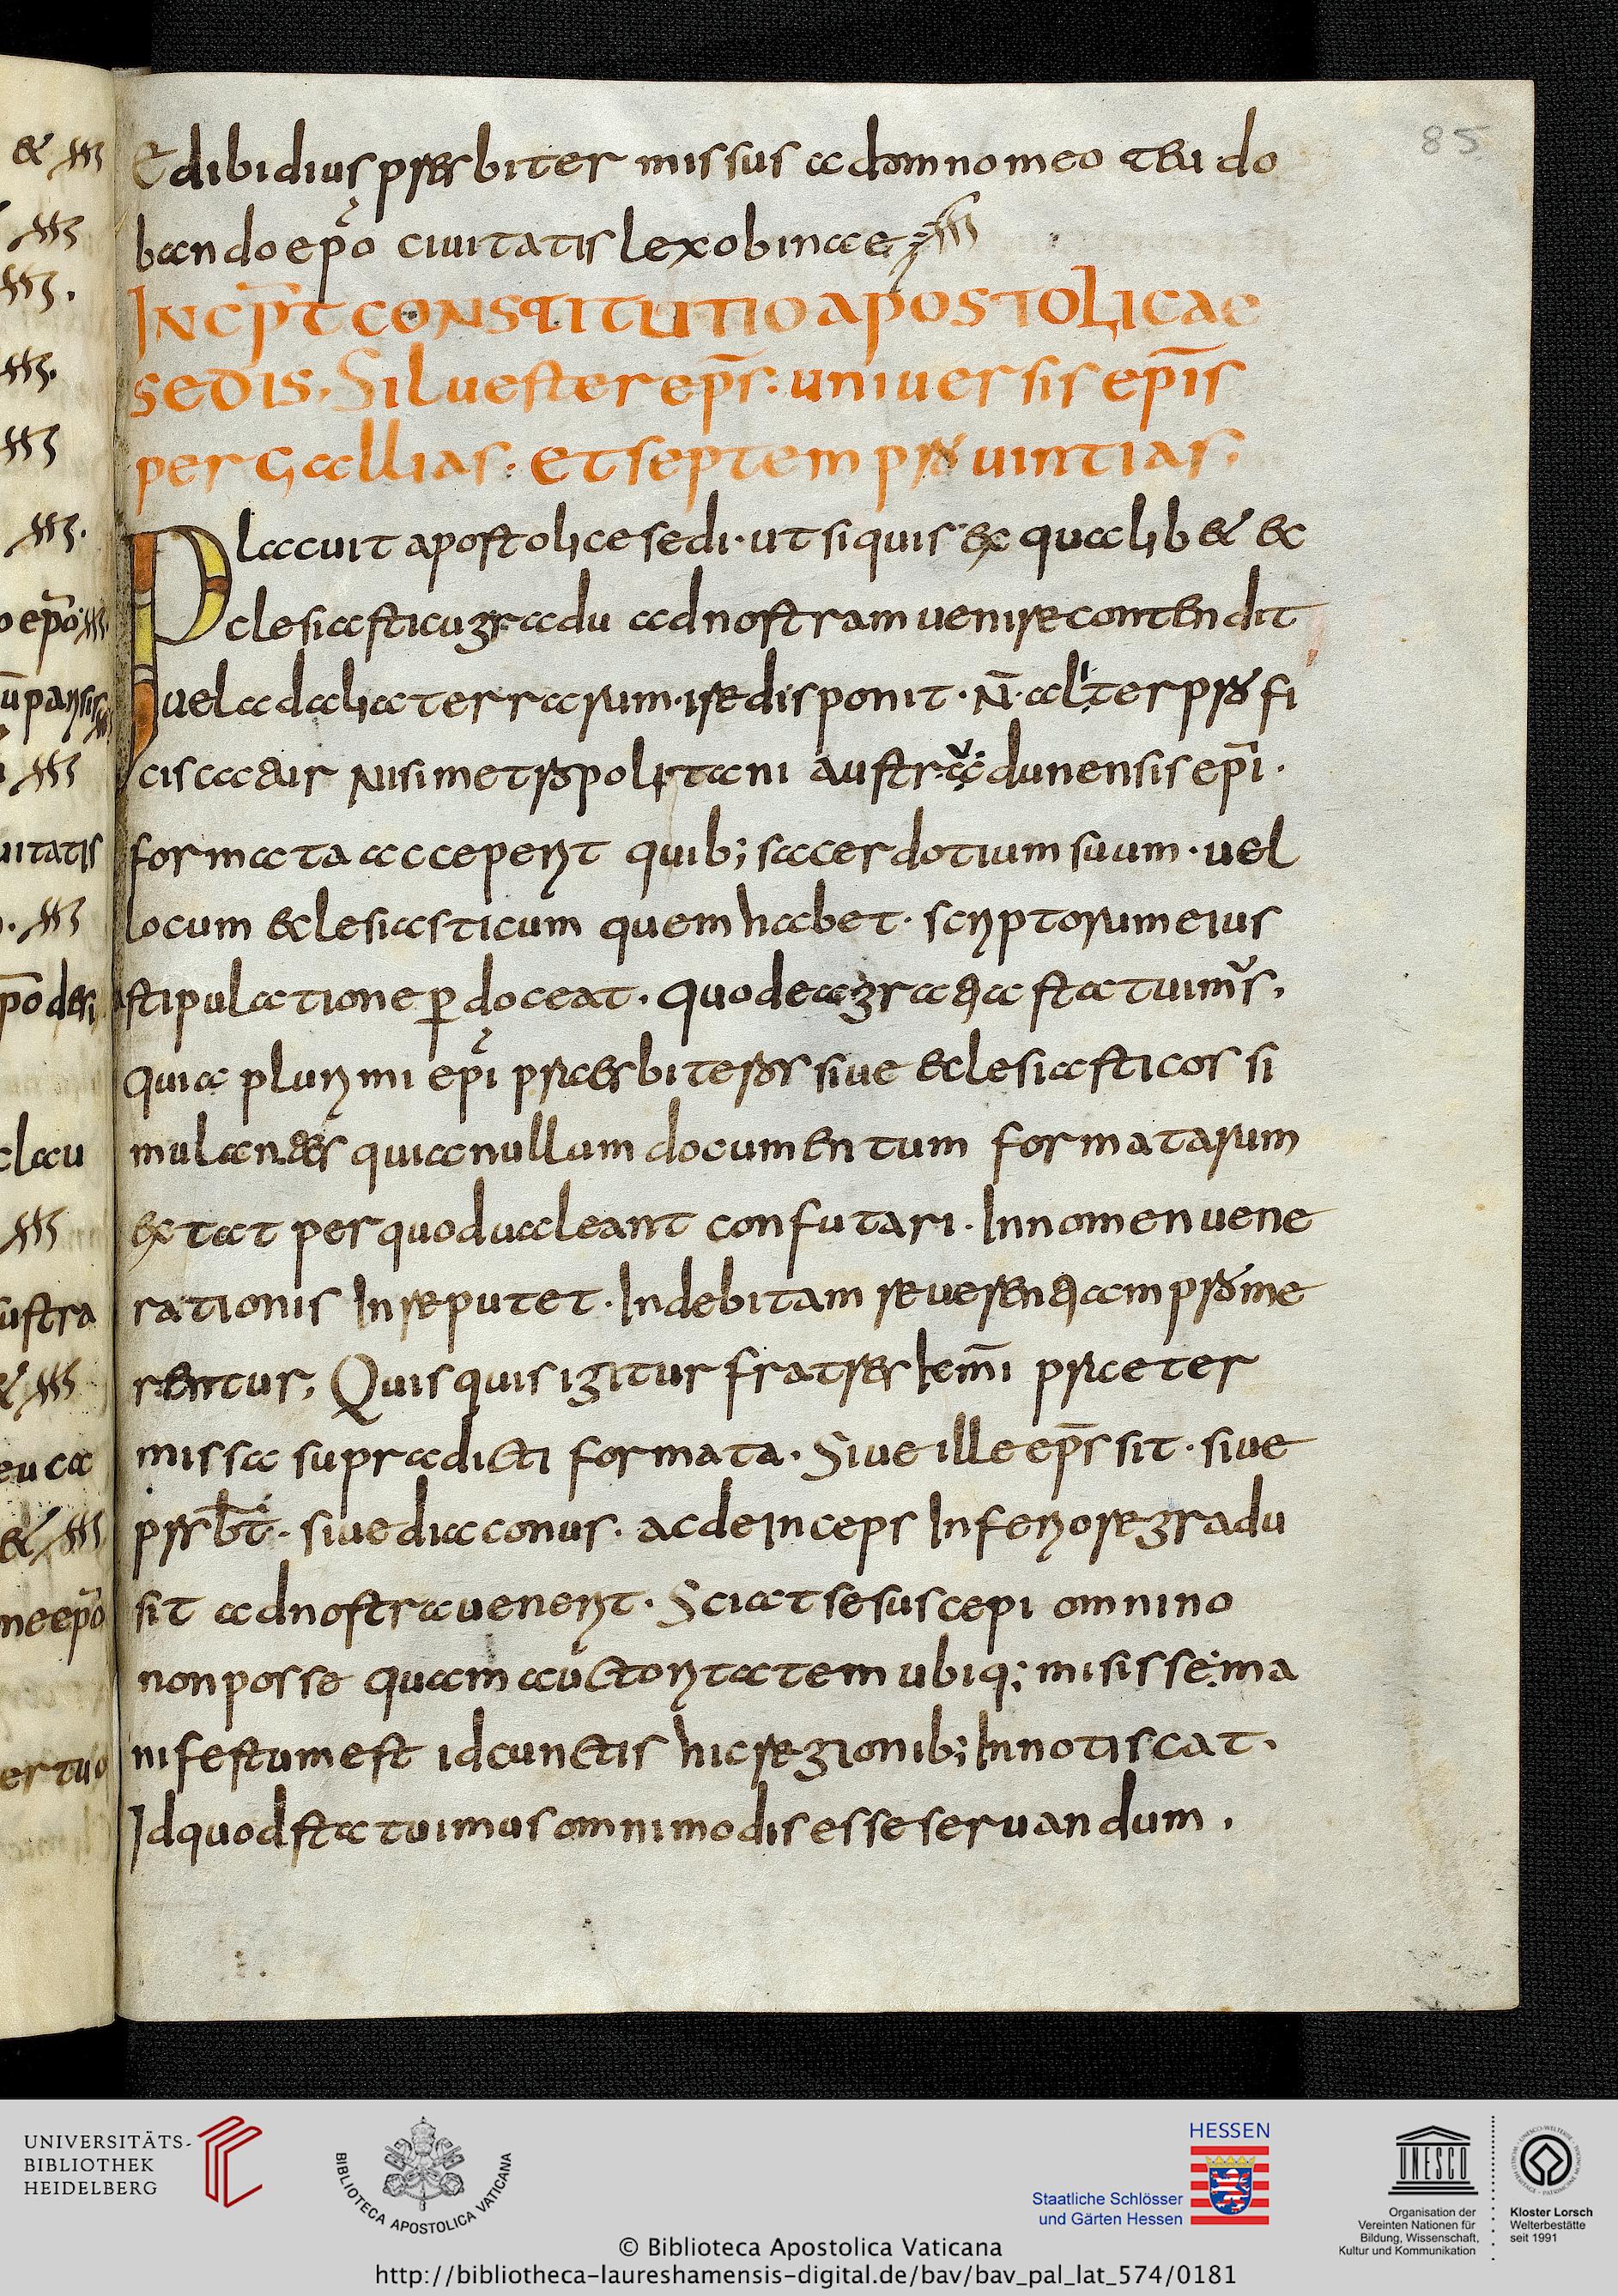 85
Edibidius presbiter missus a domno meo teudo
bando ep̄o ciuitatis lexobinae
INCP̄T CONSTITUTIO APOSTOLICAE
SEDIS. Siluester ep̄s: uniuersis ep̄is
per Gallias. et septem prouintias.
Placuit apostolice sedi. ut siquis ex qualib& ec
clesiasticu gradu ad nostram uenire contendit
uel ad alia terrarum. ire disponit. N̄. aliter profi
ciscatur nisi metropolitani austradunensis ep̄i.
formata acceperit quib; sacerdotium suum. uel
locum eclesiasticum quem habet. scriptorum eius
stipulatione ꝑdoceat. quod ea gratia statuimus.
quia plurimi ep̄i praesbiteros siue eclesiasticos si
mulantes quia nullum documentum formatarum
extat per quod ualeant confutari. In nomen uene
rationis Inreputet. Indebitam reuerentiam prome
rentur. Quisquis igitur fratres km̄i praeter
missa supradicti formata. Siue ille ep̄s sit. siue
prsb̄t. siue diaconus. ac deinceps Inferiore gradu
sit ad nostra uenerit. Sciat se suscepi omnino
non posse quam auctoritatem ubiq; misisse: ma
nifestum est id cunctis hic regionib; Innotiscat.
Id quod statuimus omnimodis esse seruandum.
UNIVERSITÄTS-
BIBLIOTHEK
HEIDELBERG
BIBLIOTECA APOSTOLICA VATICANA
HESSEN
Staatliche Schlösser
und Gärten Hessen
UNESCO
Organisation der
Vereinten Nationen für
Bildung, Wissenschaft,
Kultur und Kommunikation
Kloster Lorsch
Welterbestätte
seit 1991
© Biblioteca Apostolica Vaticana
http://bibliotheca-laureshamensis-digital.de/bav/bav_pal_lat_574/0181